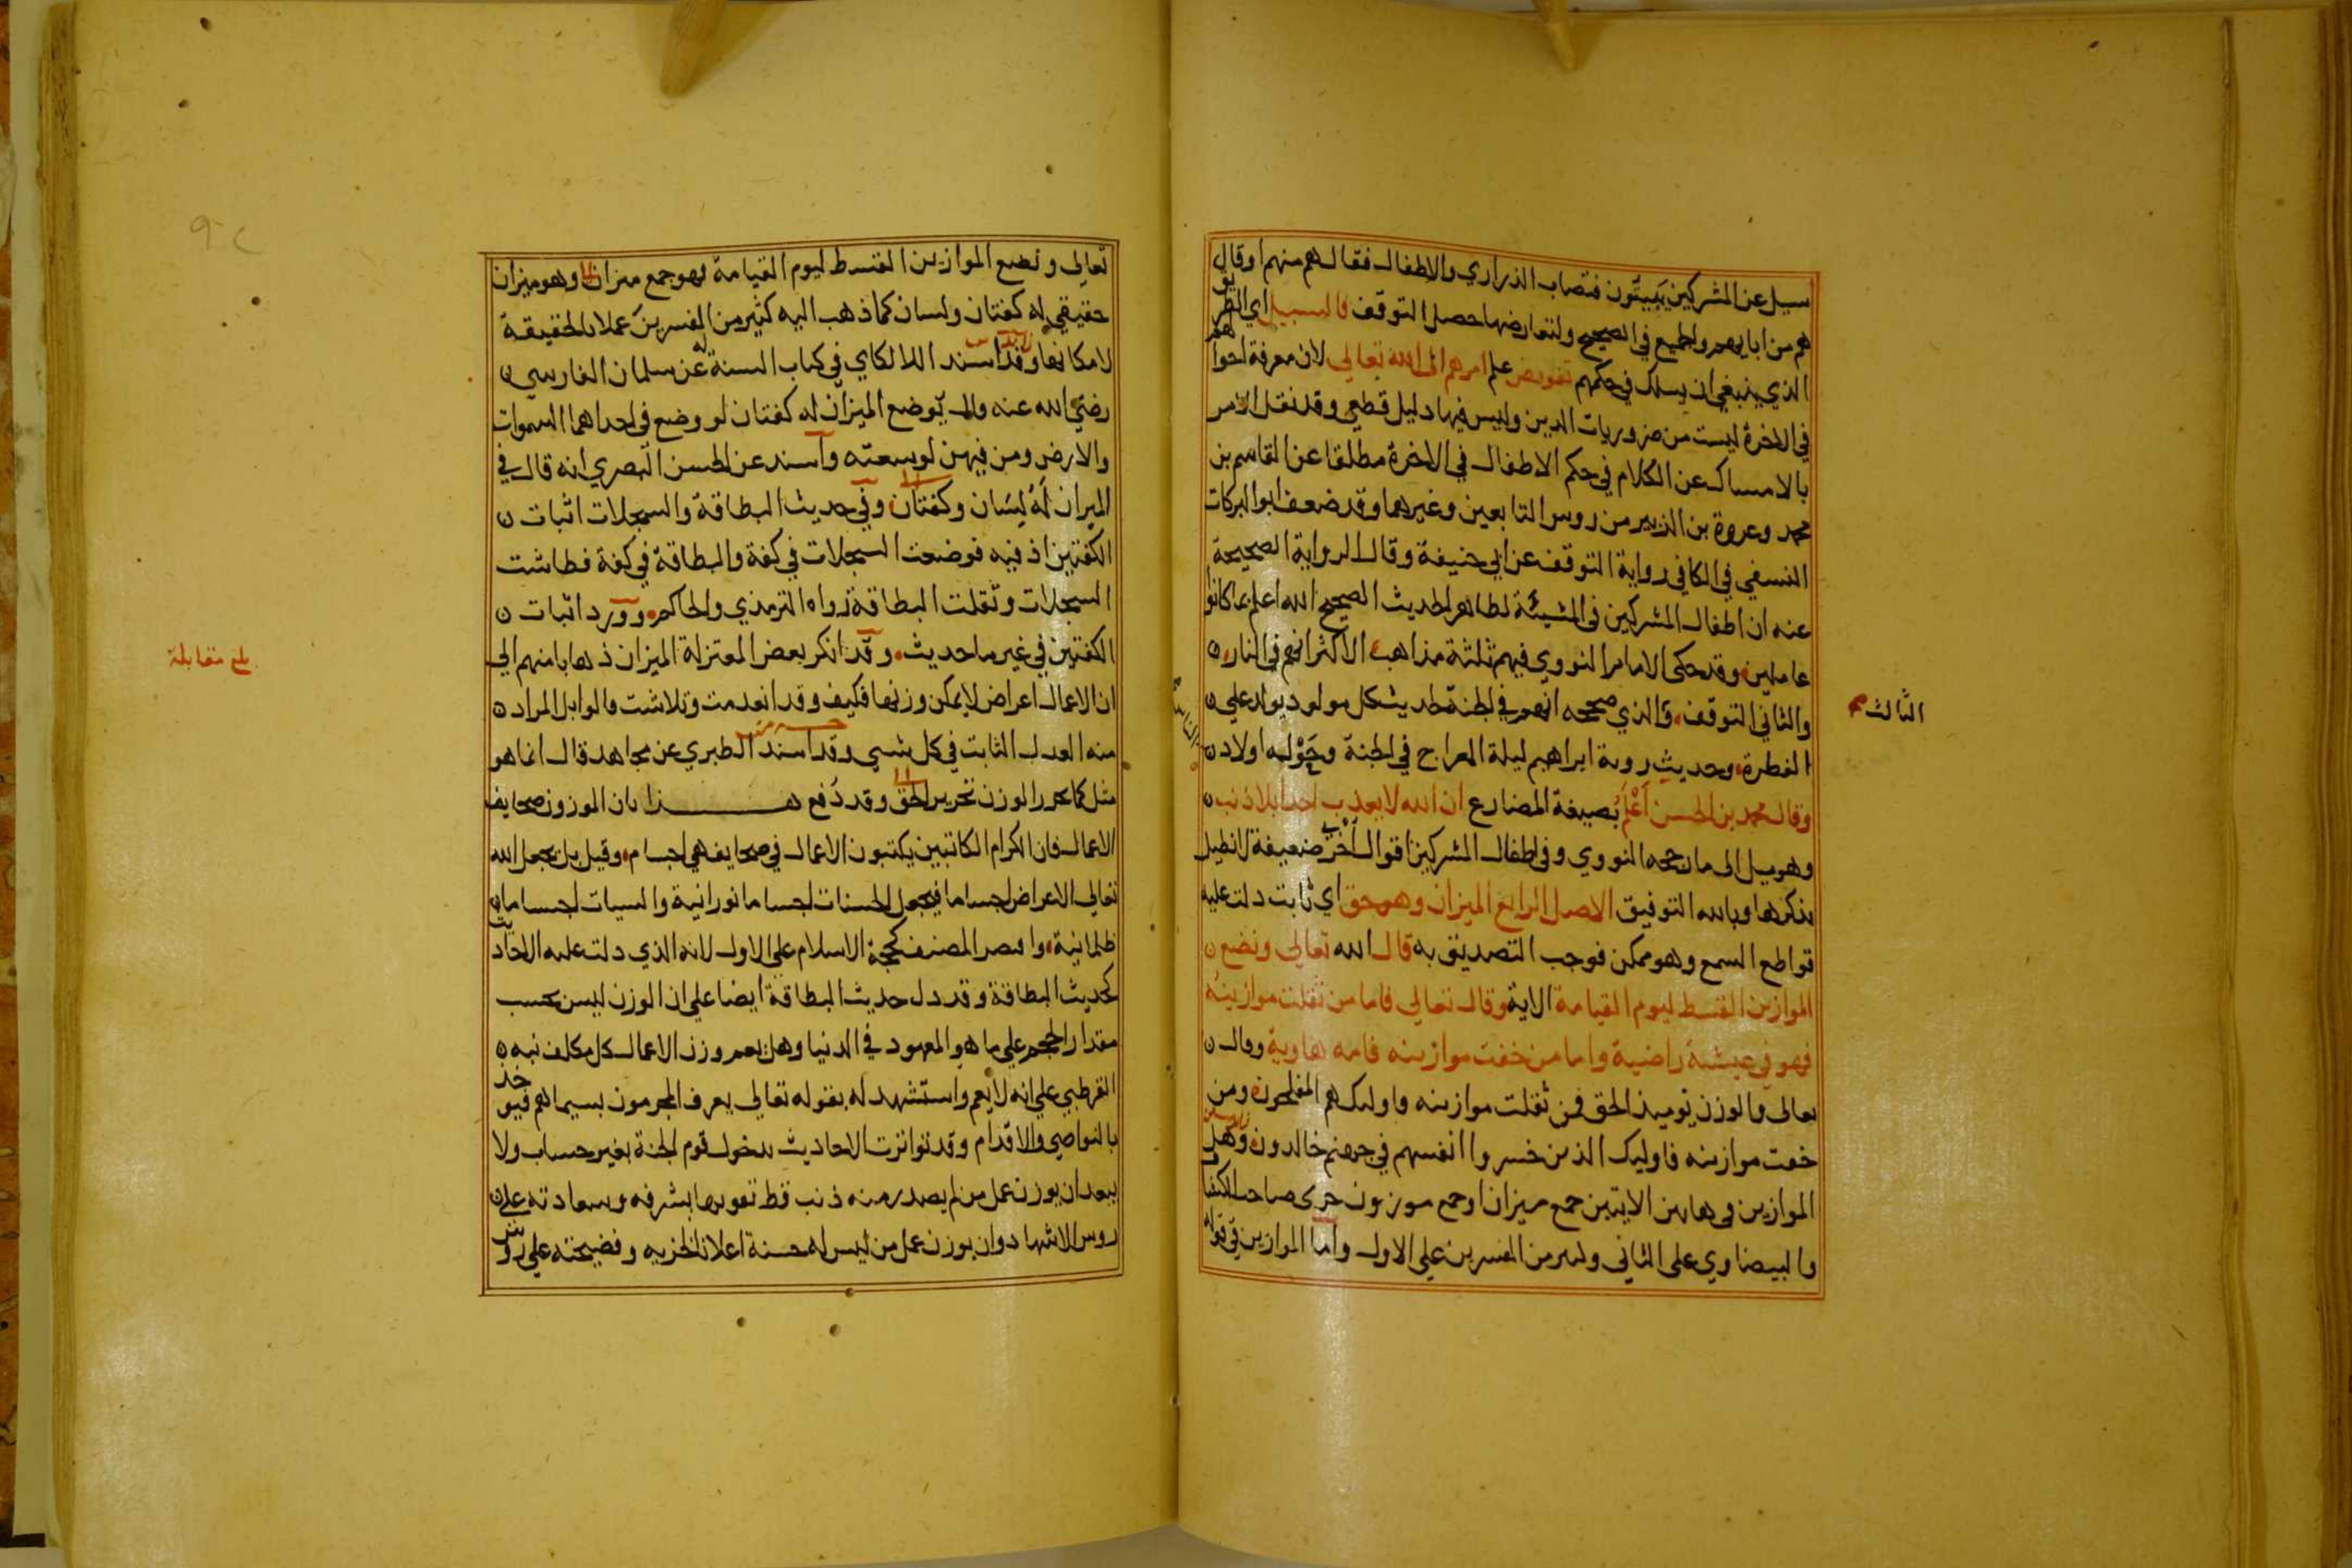 سيل عن المشركين يبيتون فتصاب الذراري والاطفال فقال هم منهم او قال
هم من ابايهم والجميع في الصحيح ولتعارضها حصل التوقف فالسبيل اي الطريق
الذي ينبغي ان يسلك في حكمهم تفويض علم امرهم الى الله تعالى لان معرفة احوالهم
في الاخرة ليست من ضروريات الدين وليس فيها دليل قطعي وقد نقل الامر
بالامساك عن الكلام في حكم الاطفال في الاخرة مطلقا عن القاسم بن
محمد وعروة بن الزبير من روس التابعين وغيرهما وقد ضعف ابو البركات
النسفي في الكافي رواية التوقف عن ابي حنيفة وقال الرواية الصحيحة
عنه ان اطفال المشركين في المشيئة لظاهر الحديث الصحيح الله اعلم بما كانوا
عاملين وقد حكى الامام النووي فيهم ثلثة مذاهب الاكثر انهم في النار
والثاني التوقف والذي صححه انهم في الجنة لحديث كل مولود يولد علي
الثالث
الفطرة وحديث روية ابراهيم ليلة المعراج في الجنة وحوله اولاد
وقال محمد بن الحسن أعلم بصيغة المضارع ان الله لا يعذب احدا بلا ذنب
وهو ميل الى ما رجحه النووي وفي اطفال المشركين اقوال أخر ضعيفة لا نطيل
بذكرها وبالله التوفيق الاصل الرابع الميزان وهو حق اي ثابت دلت عليه
قواطع السمع وهو ممكن فوجب التصديق به قال الله تعالى ونضع
الموازين القسط ليوم القيامة الاية وقال تعالي فاما من ثقلت موازينه
فهو في عيشة راضية واما من خفت موازينه فامه هاوية وقال
تعالى والوزن يوميذ الحق فمن ثقلت موازينه فاوليك هم المفلحون ومن
خفت موازينه فاوليك الذين خسروا انفسهم في جهنم خالدون وهل
الموازين في هاتين الايتين جمع ميزان او جمع موزون جرى صاحب الكشاف
والبيضاوي على الثاني وكثير من المفسرين علي الاول واما الموازين في قوله
تعالي ونضع الموازين القسط ليوم القيامة فهو جمع ميزان وهو ميزان
حقيقي له كفتان ولسان كما ذهب اليه كثير من المفسرين عملا بالحقيقة
لامكانها وقد اسند اللالكاي في كتاب السنة له عن سلمان الفارسي
رضي الله عنه قال يوضع الميزان له كفتان لو وضع في احداهما السموات
والارض ومن فيهن لوسعته واسند عن الحسن البصري انه قال في
الميزان له لسان وكفتان وفي حديث البطاقة والسجلات اثبات
الكفتين اذ فيه فوضعت السجلات في كفة والبطاقة في كفة فطاشت
السجلات وثقلت البطاقة رواه الترمذي والحاكم وورد اثبات
الكفتين في غير ما حديث وقد انكر بعض المعتزلة الميزان ذهابا منهم الي
بلغ مقابلة
ان الاعمال اعراض لا يمكن وزنها فكيف وقد انعدمت وتلاشت قالوا بل المراد
منه العدل الثابت في كل شي وقد اسند الطبري عن مجاهد قال انما هو
مثل كما يحرر الوزن تحرير الحق وقد دفع هذا بان الموزون صحايف
الاعمال فان الكرام الكاتبين يكتبون الاعمال في صحايف هي اجسام وقيل بل يجعل الله
تعالي الاعراض اجساما فيجعل الحسنات اجساما نورانية والسيات اجساما
ظلمانية واقتصر المصنف كحجة الاسلام على الاول لانه الذي دلت عليه الاحاديث
كحديث البطاقة وقد دل حديث البطاقة ايضا علي ان الوزن ليس بحسب
مقدار الحجم علي ما هو المعهود في الدنيا وهل يعم وزن الاعمال كل مكلف نبه
القرطبي علي انه لا يعم واستشهد له بقوله تعالي يعرف المجرمون بسيماهم فيوخذ
بالنواصي والاقدام وقد تواترت الاحاديث بدخول قوم الجنة بغير حساب ولا
يبعد ان يوزن عمل من لم يصدر منه ذنب قط تنويها بشرفه وسعادته علي
روس الاشهاد وان يوزن عمل من ليس له حسنة اعلانا لخزيه وفضيحته علي روس